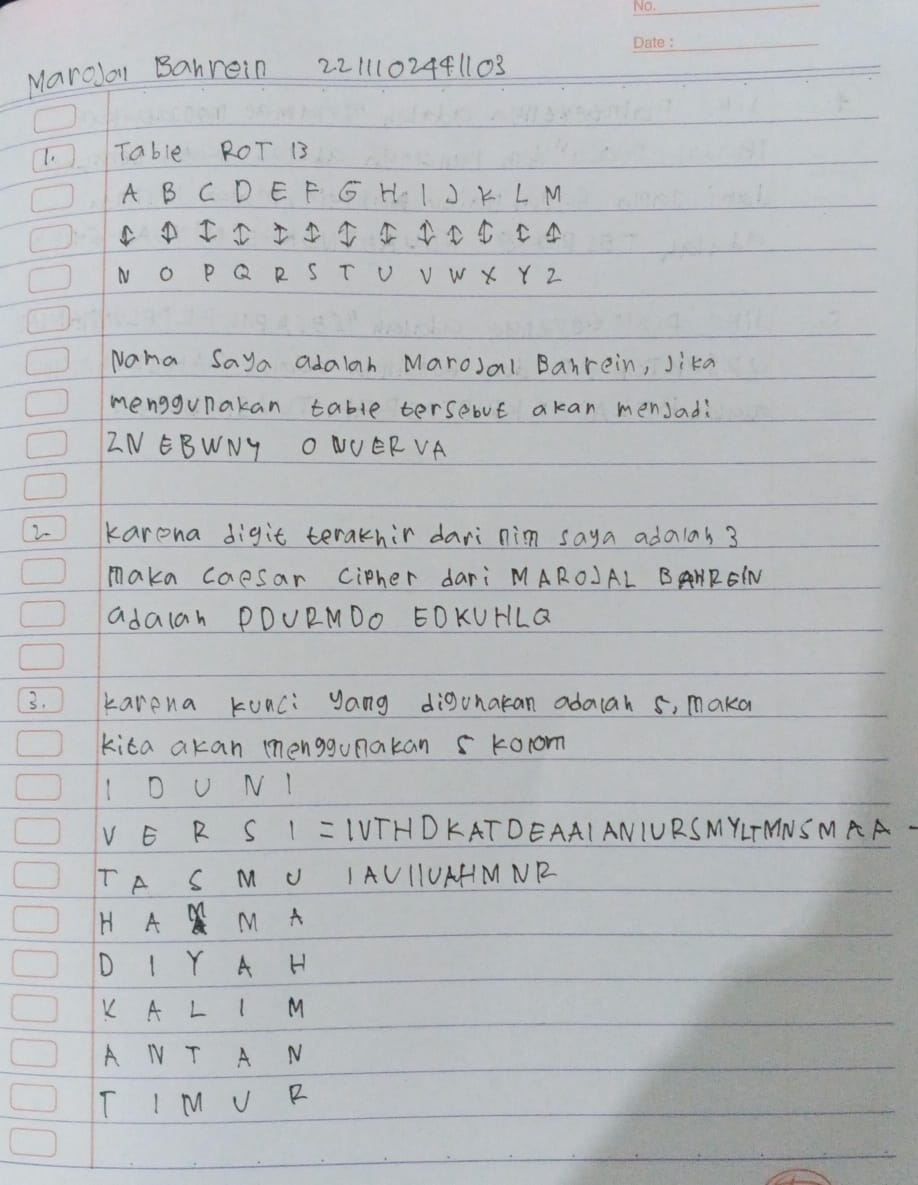 No.
Date :
Marojal Bahrein 2211102441103
1. Table ROT 13
A B C D E F G H I J K L M
↕ ↕ ↕ ↕ ↕ ↕ ↕ ↕ ↕ ↕ ↕ ↕ ↕
N O P Q R S T U V W X Y Z
Nama saya adalah Marojal Bahrein, Jika
menggunakan table tersebut akan menjadi
ZN EBWNY ONUERVA
2. Karena digit terakhir dari nim saya adalah 3
Maka Caesar Cipher dari MAROJAL BAHREIN
adalah PDURMDO EDKUHLQ
3. Karena kunci yang digunakan adalah 5, maka
kita akan menggunakan 5 kolom
I D U N I
V E R S I = IVTHDKATDEAAIANIURSMYLTMNSMAA -
T A S M U IAUIIUAHMNR
H A M M A
D I Y A H
K A L I M
A N T A N
T I M U R